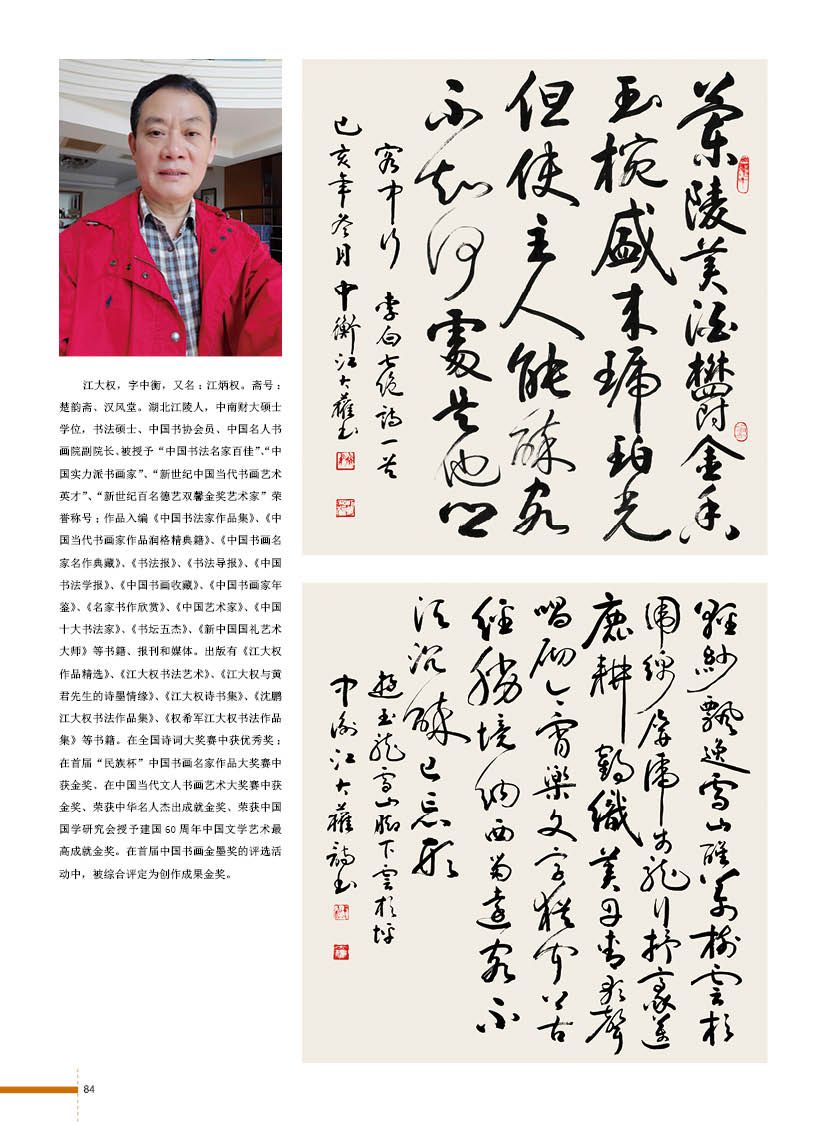 江大权，字中衡，又名：江炳权。斋号：
楚韵斋、汉风堂。湖北江陵人，中南财大硕士
学位，书法硕士、中国书协会员、中国名人书
画院副院长、被授予“中国书法名家百佳”、“中
国实力派书画家”、“新世纪中国当代书画艺术
英才”、“新世纪百名德艺双馨金奖艺术家”荣
誉称号；作品入编《中国书法家作品集》、《中
国当代书画家作品润格精典籍》、《中国书画名
家名作典藏》、《书法报》、《书法导报》、《中国
书法学报》、《中国书画收藏》、《中国书画家年
鉴》、《名家书作欣赏》、《中国艺术家》、《中国
十大书法家》、《书坛五杰》、《新中国国礼艺术
大师》等书籍、报刊和媒体。出版有《江大权
作品精选》、《江大权书法艺术》、《江大权与黄
君先生的诗墨情缘》、《江大权诗书集》、《沈鹏
江大权书法作品集》、《权希军江大权书法作品
集》等书籍。在全国诗词大奖赛中获优秀奖；
在首届“民族杯”中国书画名家作品大奖赛中
获金奖、在中国当代文人书画艺术大奖赛中获
金奖、荣获中华名人杰出成就金奖、荣获中国
国学研究会授予建国 60 周年中国文学艺术最
高成就金奖。在首届中国书画金墨奖的评选活
动中，被综合评定为创作成果金奖。
蘭陵美酒鬱金香
玉椀盛来琥珀光
但使主人能醉客
不知何處是他鄉
客中行 李白七绝詩一首
己亥年冬月中衡江大權书
輕紗飄逸雪山醒 萬樹雲杉
經勝境納西留遠客 不
須沉醉已忘形
遊玉龍雪山脚下雲杉坪
中衡江大權詩书
84